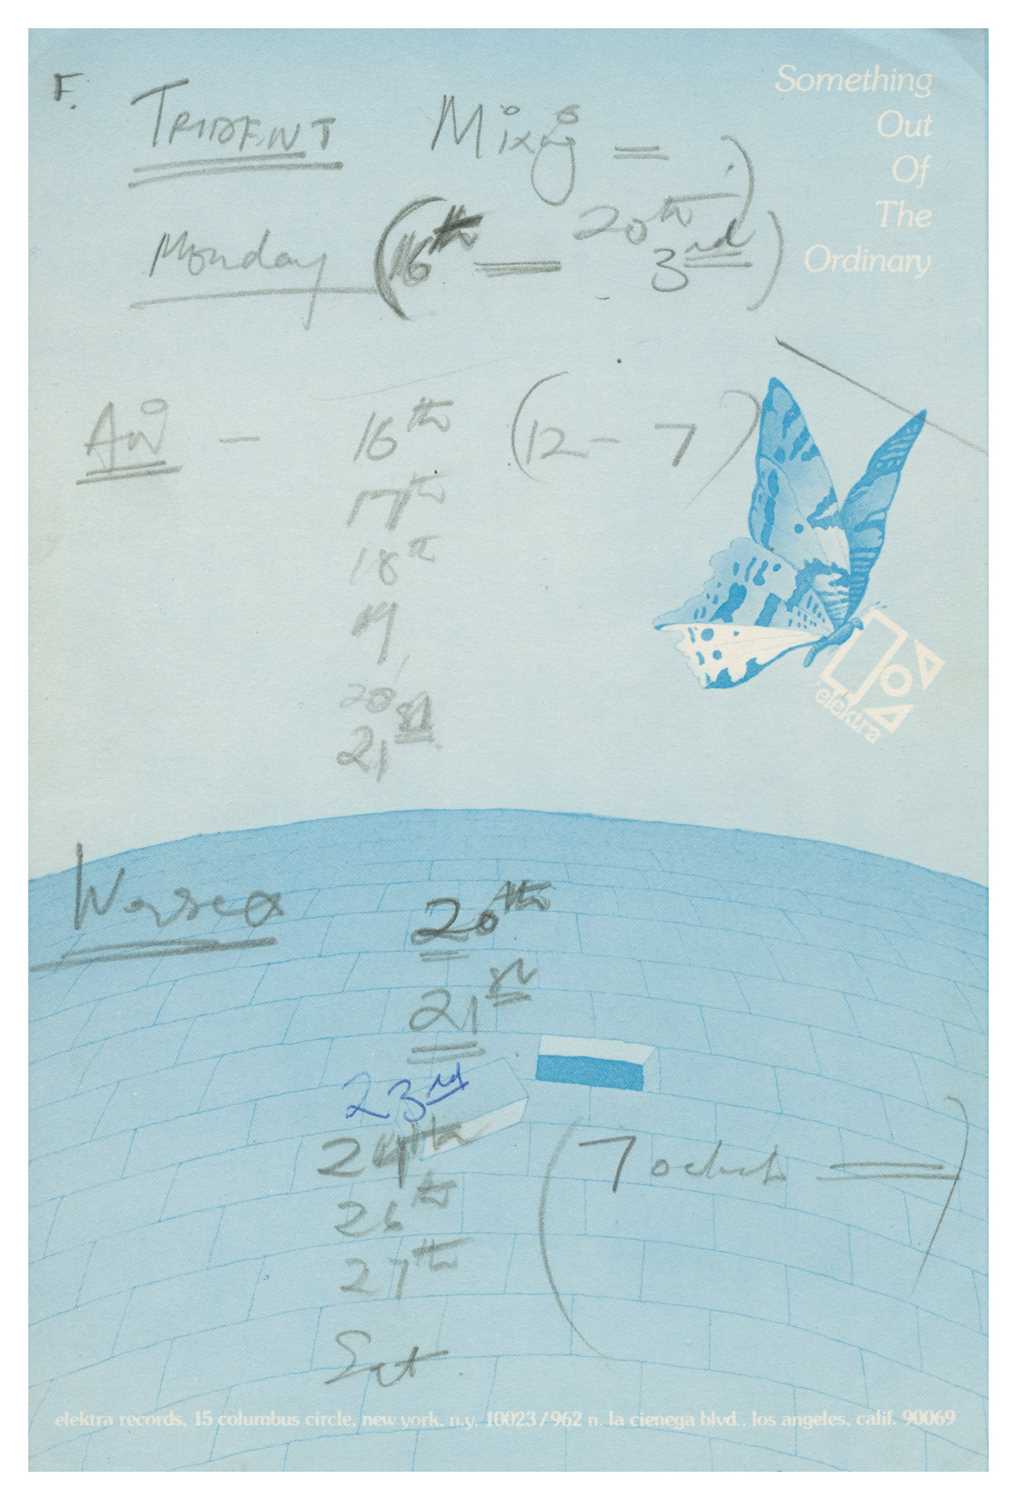 F.
TRIDENT Mixing =
Something
Out
Of
The
Ordinary
20th )
Monday (16th — 3rd)
Air – 16th (12 – 7)
17th
18th
19
20
21st
elektra
Wessex 20th
21st
23rd
24th (7 oclock =)
26th
27th
Sat.
elektra records, 15 columbus circle, new york, n.y. 10023/962 n. la cienega blvd., los angeles, calif. 90069